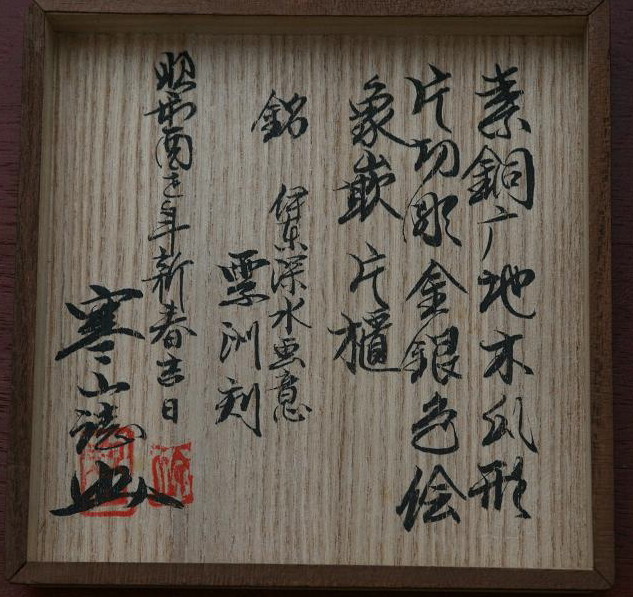 素銅广地木瓜形
片切彫金銀色絵
象嵌 片櫃
銘 伊東深水画意
雲洲刻
昭和酉之年新春吉日
寒山誌